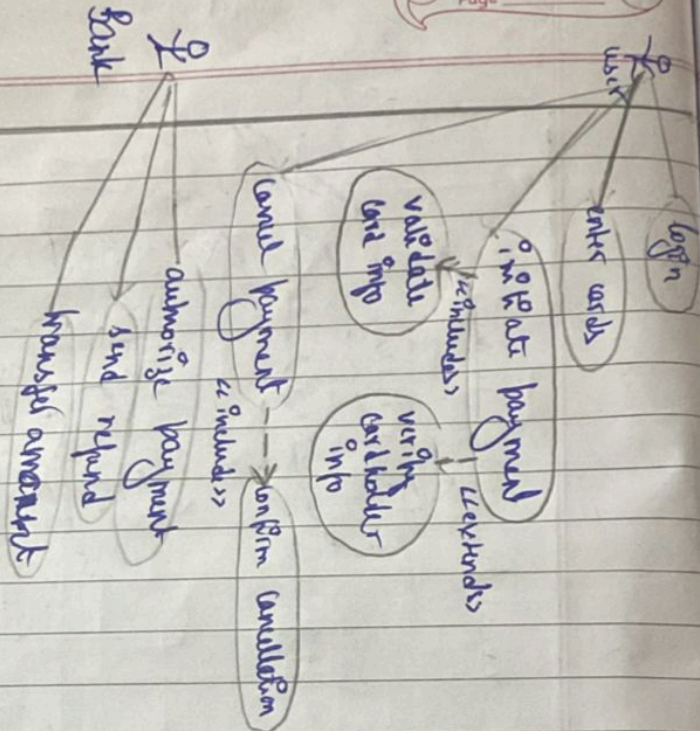 Page
user
login
enter cards
initiate payment
<<includes>>
<<extends>>
validate
card info
verify
cardholder
info
cancel payment
<<includes>>
confirm cancellation
Bank
authorize payment
send refund
transfer amount